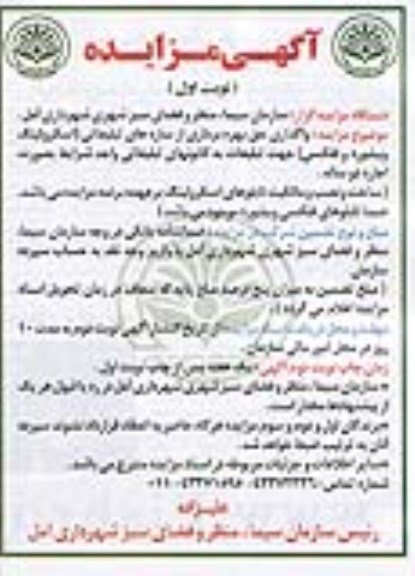 آگهی مزایده
( نوبت اول )
دستگاه مزایده گزار: سازمان سیما، منظر و فضای سبز شهری شهرداری آمل.
موضوع مزایده: واگذاری حق بهره برداری از سازه های تبلیغاتی (اسکرولینگ
وبیلبورد و فلکسی) جهت تبلیغات به کانونهای تبلیغاتی واجد شرایط بصورت
اجاره دو ساله.
( ساخت و نصب و مالکیت تابلوهای اسکرولینگ بر عهده برنده مزایده می باشد.
ضمنا تابلوهای فلکسی و بیلبورد موجود می باشد )
مبلغ و نوع تضمین شرکت در مزایده: ضمانتنامه بانکی در وجه سازمان سیما،
منظر و فضای سبز شهری شهرداری آمل یا واریز وجه نقد به حساب سپرده
سازمان.
( مبلغ تضمین به میزان پنج درصد مبلغ پایه که متعاقبا در زمان تحویل اسناد
مزایده اعلام می گردد ).
مهلت و محل دریافت اسناد مزایده: از تاریخ انتشار آگهی نوبت دوم به مدت ۱۰
روز در محل امور مالی سازمان.
زمان چاپ نوبت دوم آگهی: یک هفته پس از چاپ نوبت اول.
* سازمان سیما، منظر و فضای سبز شهری شهرداری آمل در رد یا قبول هر یک
از پیشنهادها مختار است.
*برندگان اول و دوم و سوم مزایده هرگاه حاضر به انعقاد قرارداد نشوند سپرده
آنان به ترتیب ضبط خواهد شد.
*سایر اطلاعات و جزئیات مربوطه در اسناد مزایده مندرج می باشد.
شماره تماس:
علیزاده
رئیس سازمان سیما، منظر و فضای سبز شهرداری آمل